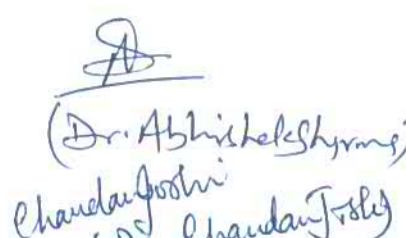 (Dr. Abhishek Sharma)
Chandan Joshi
Chandan Joshi)